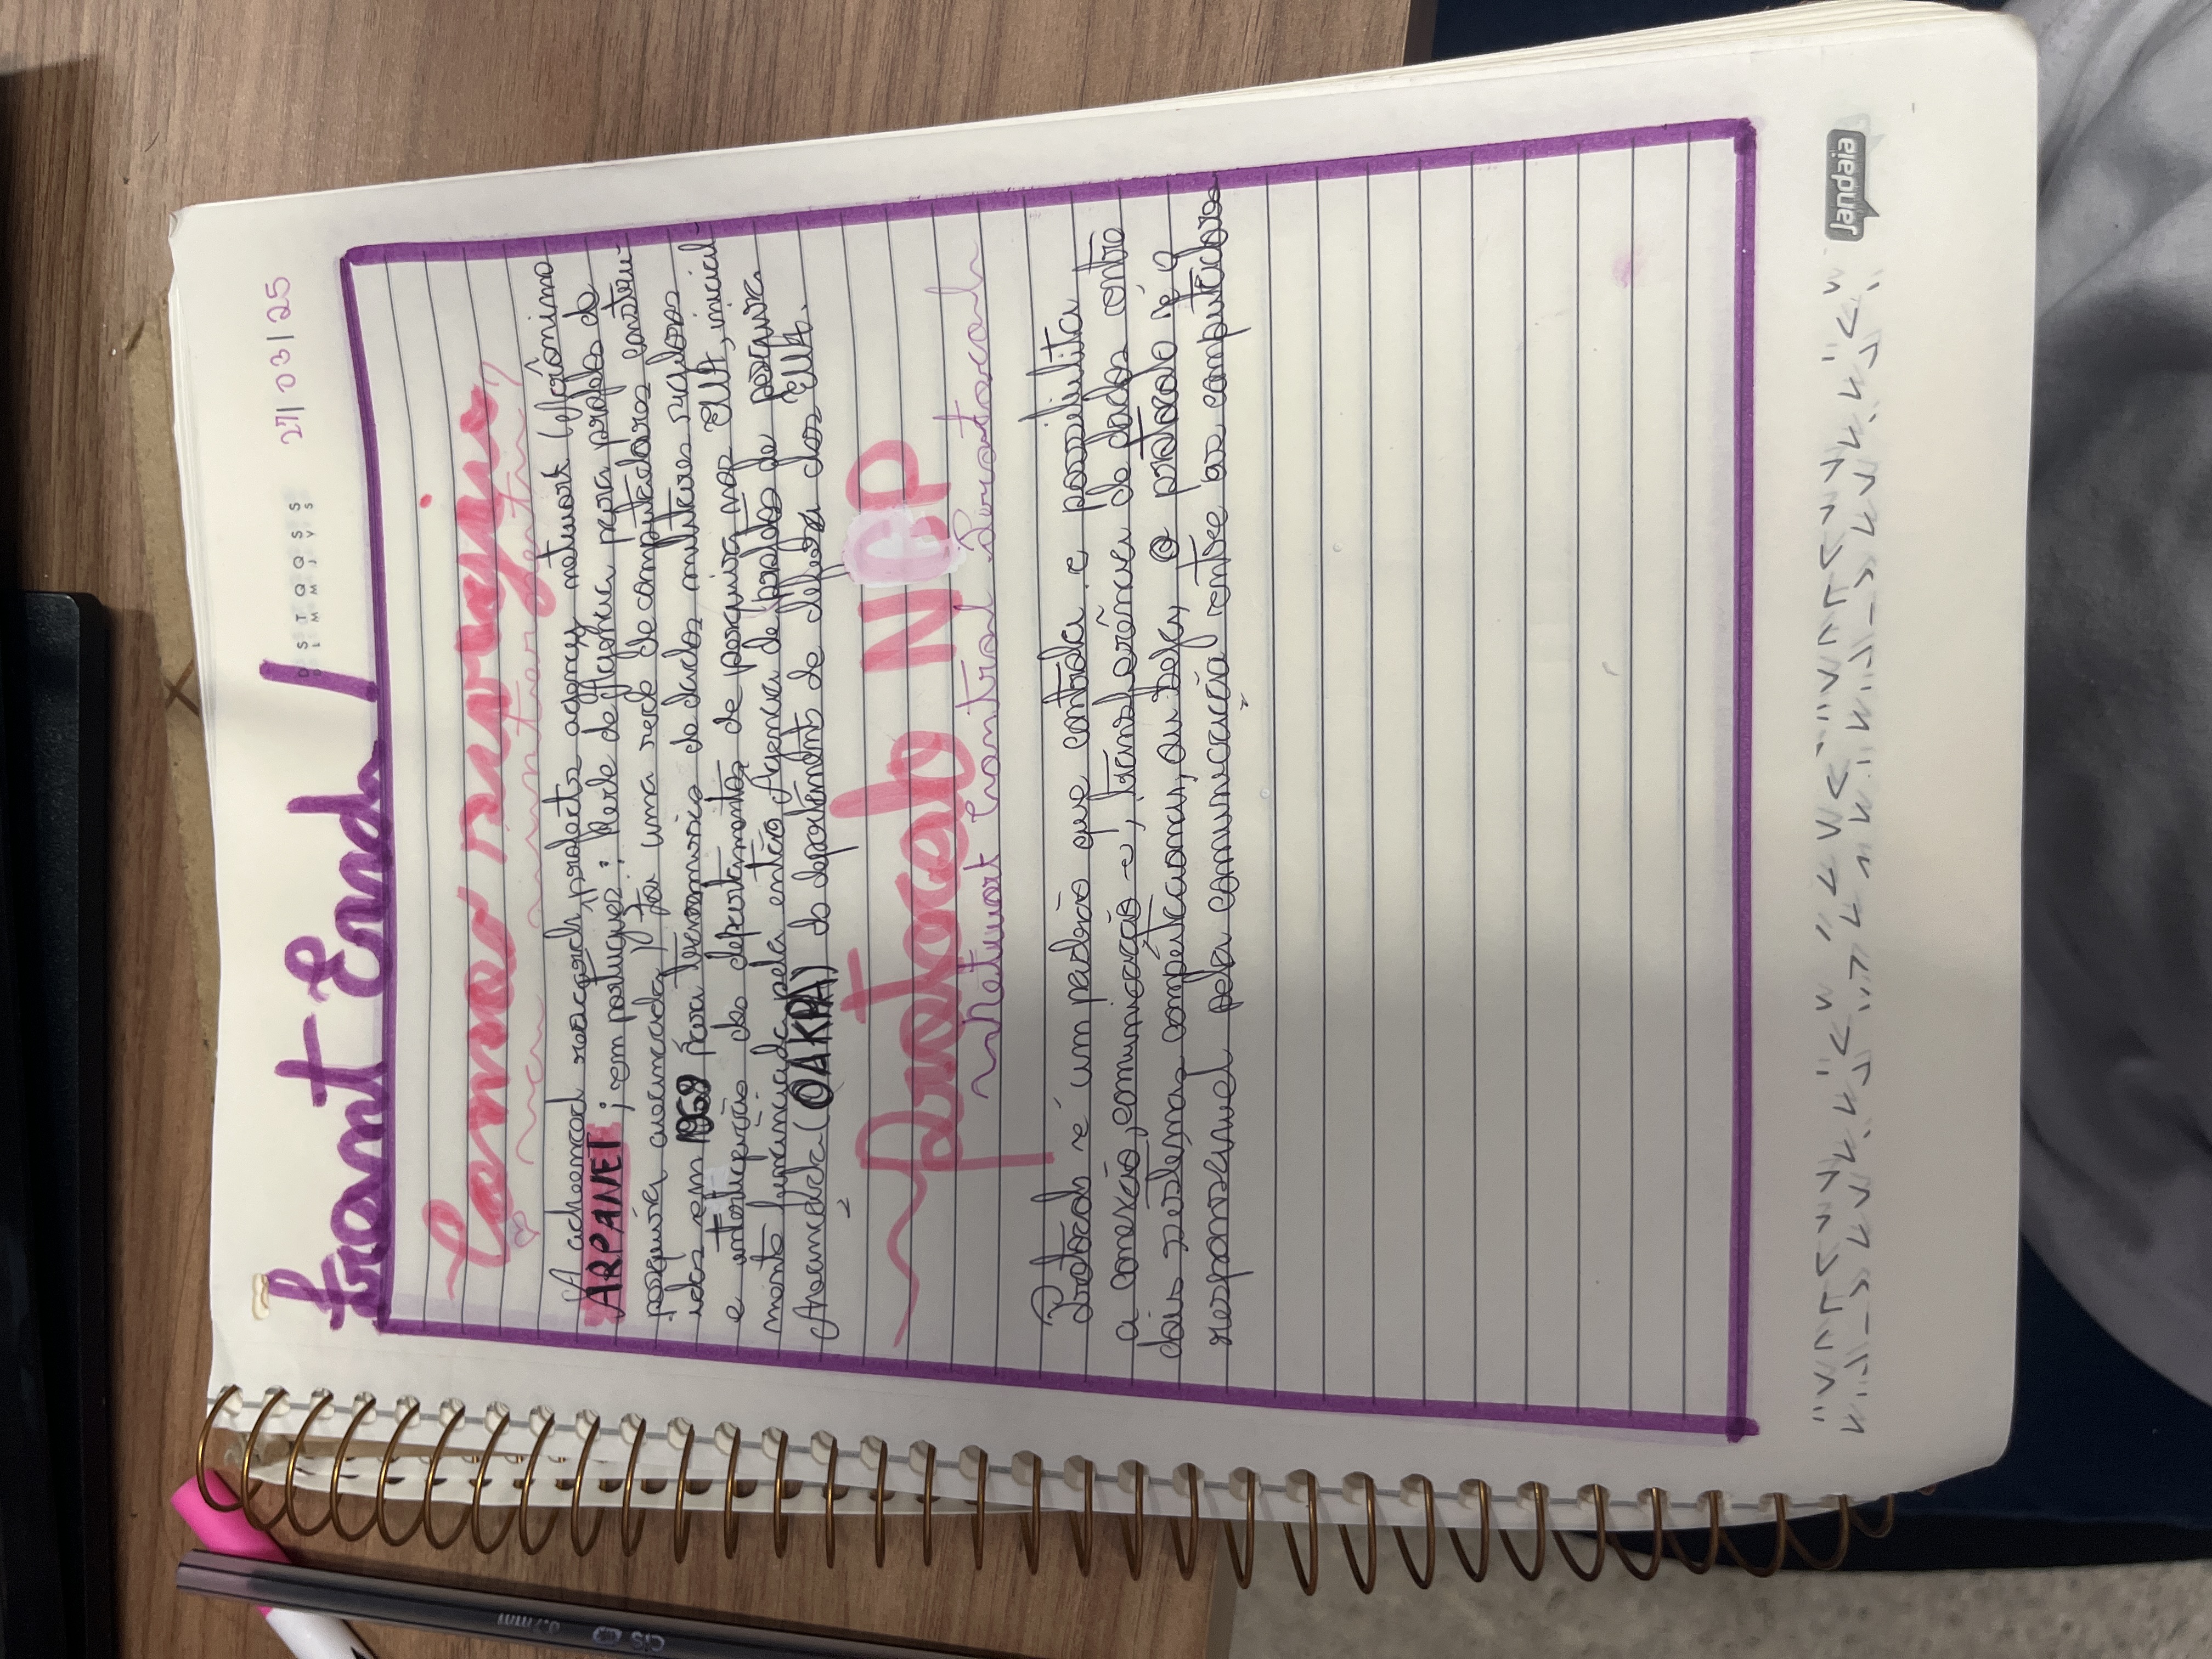 Front End !
27/03/25
D S T Q Q S S
D L M M J V S
Como surgiu
a internet?
A advanced research projects agency network (Acrônimo
ARPANET ; em português: Rede de Agência para projetos de
pesquisa avançada) foi uma rede de computadores constru-
idas em 1969 para de dados militares sigilosos
e dos departamentos de pesquisa nos EUA, inicial
mente financiada pela então Agencia de projetos de pesquisa
Avançada ( ) do departamento de defesa dos EUA.
Protocolo NCP
Network Control Protocol
Protocolo é um padrão que controla e possibilita
a conexão, comunicação e, transferência de dados entre
dois sistemas computacionais, ou seja, o protocolo é o
responsável pela comunicação entre os computadores
Jandaia
cis 0.7mm